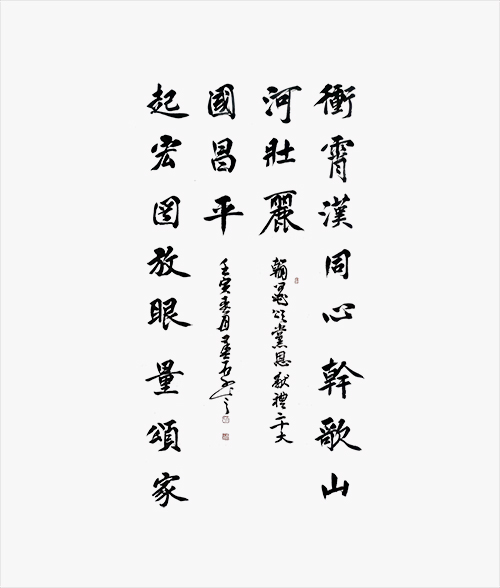 衝霄漢同心幹歌山
河壯麗
翰墨頌黨恩獻禮二十大
起宏圖放眼量頌家
國昌平
壬寅